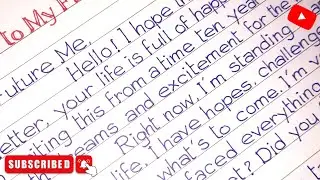 to My F
Future Me,
Hello! I hope th
etter, your life is full of happ
iting this from a time ten year
dreams and excitement for the
Right now, I'm standing
life. I have hopes, challeng
what's to come. I'm
faced everything
Did you
SUBSCRIBED